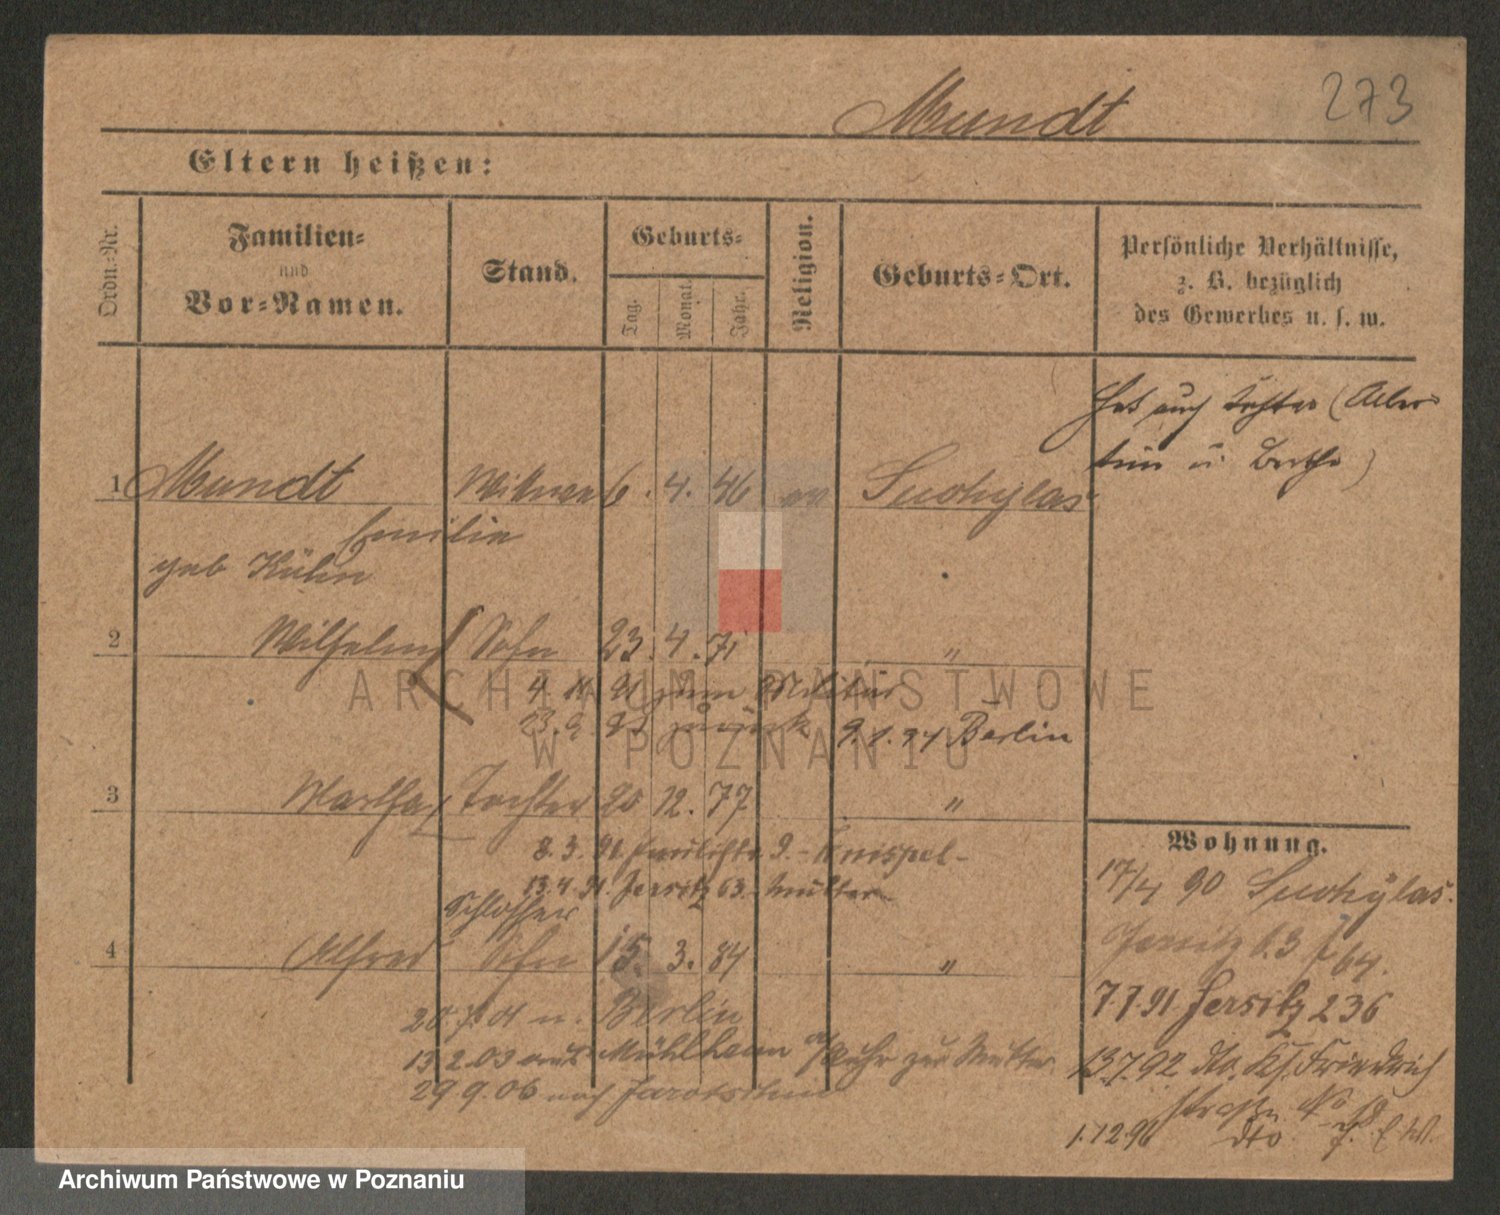 273
Mundt
Eltern heißen:
Ordn.-Nr.
Familien-
und
Vor-Namen.
Stand.
Geburts-
Tag.
Monat.
Jahr.
Religion.
Geburts-Ort.
Persönliche Verhältnisse,
z. B. bezüglich
des Gewerbes u. s. w.
Hat auch Töchter (Alber-
tine u. Bertha)
1 Mundt Witwe 6. 4. 46 ev Suchylas
Emilie
geb Kühn
2 Wilhelm Sohn 23. 4. 71 "
4. 91 zum Militär
23. 9. zurück 9.1.94 Berlin
3 Martha Tochter 20 12. 77 "
8. 3. 91 9.
13.4.91. Jersitz 63. Mutter
Schlosser
4 Alfred Sohn 15. 3. 84 "
20. 7. n. Berlin
13 2.03 aus Mühlheim a/Ruhr zur Mutter
29 9.06 nach Jarotschin
Wohnung.
17/4 90 Suchylas.
Jersitz 63 64.
7 7 91 Jersitz 236
13.7.92 dto. Ks. Friedrich
straße No
1.12.96 dto.
ARCHIWUM PAŃSTWOWE
W POZNANIU
Archiwum Państwowe w Poznaniu